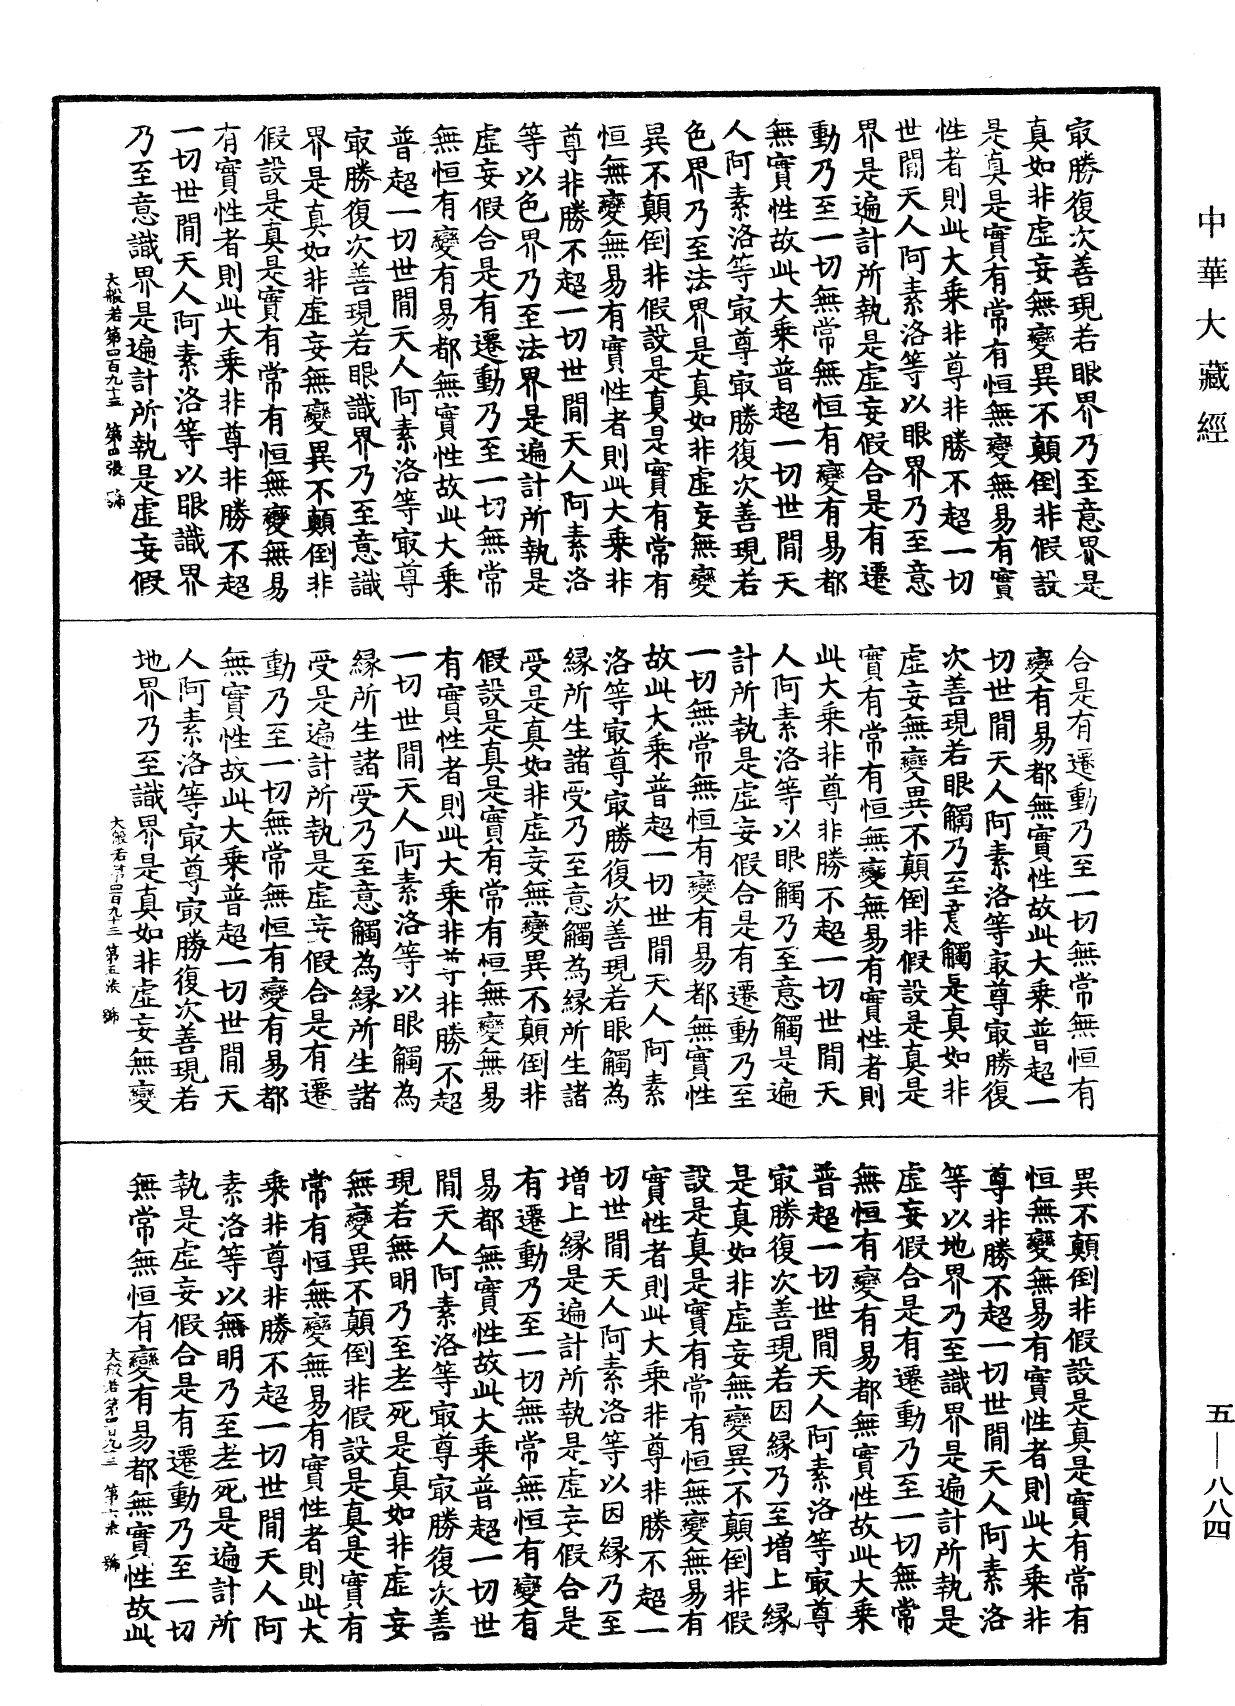 中華大藏經
㝡勝復次善現若眼界乃至意界是
真如非虛妄無變異不顛倒非假設
是真是實有常有恒無變無易有實
性者則此大乘非尊非勝不超一切
世間天人阿素洛等以眼界乃至意
界是遍計所執是虛妄假合是有遷
動乃至一切無常無恒有變有易都
無實性故此大乘普超一切世間天
人阿素洛等㝡尊㝡勝復次善現若
色界乃至法界是真如非虛妄無變
異不顛倒非假設是真是實有常有
恒無變無易有實性者則此大乘非
尊非勝不超一切世間天人阿素洛
等以色界乃至法界是遍計所執是
虛妄假合是有遷動乃至一切無常
無恒有變有易都無實性故此大乘
普超一切世間天人阿素洛等㝡尊
㝡勝復次善現若眼識界乃至意識
界是真如非虛妄無變異不顛倒非
假設是真是實有常有恒無變無易
有實性者則此大乘非尊非勝不超
一切世間天人阿素洛等以眼識界
乃至意識界是遍計所執是虛妄假
大般若第四百九十三 第四張 號
合是有遷動乃至一切無常無恒有
變有易都無實性故此大乘普超一
切世間天人阿素洛等㝡尊㝡勝復
次善現若眼觸乃至意觸是真如非
虛妄無變異不顛倒非假設是真是
實有常有恒無變無易有實性者則
此大乘非尊非勝不超一切世間天
人阿素洛等以眼觸乃至意觸是遍
計所執是虛妄假合是有遷動乃至
一切無常無恒有變有易都無實性
故此大乘普超一切世間天人阿素
洛等㝡尊㝡勝復次善現若眼觸為
緣所生諸受乃至意觸為緣所生諸
受是真如非虛妄無變異不顛倒非
假設是真是實有常有恒無變無易
有實性者則此大乘非尊非勝不超
一切世間天人阿素洛等以眼觸為
緣所生諸受乃至意觸為緣所生諸
受是遍計所執是虛妄假合是有遷
動乃至一切無常無恒有變有易都
無實性故此大乘普超一切世間天
人阿素洛等㝡尊㝡勝復次善現若
地界乃至識界是真如非虛妄無變
大般若第四百九十三 第五張 號
異不顛倒非假設是真是實有常有
恒無變無易有實性者則此大乘非
尊非勝不超一切世間天人阿素洛
等以地界乃至識界是遍計所執是
虛妄假合是有遷動乃至一切無常
無恒有變有易都無實性故此大乘
普超一切世間天人阿素洛等㝡尊
㝡勝復次善現若因緣乃至增上緣
是真如非虛妄無變異不顛倒非假
設是真是實有常有恒無變無易有
實性者則此大乘非尊非勝不超一
切世間天人阿素洛等以因緣乃至
增上緣是遍計所執是虛妄假合是
有遷動乃至一切無常無恒有變有
易都無實性故此大乘普超一切世
間天人阿素洛等㝡尊㝡勝復次善
現若無明乃至老死是真如非虛妄
無變異不顛倒非假設是真是實有
常有恒無變無易有實性者則此大
乘非尊非勝不超一切世間天人阿
素洛等以無明乃至老死是遍計所
執是虛妄假合是有遷動乃至一切
無常無恒有變有易都無實性故此
大般若第四百九十三 第六張 號
五—八八四